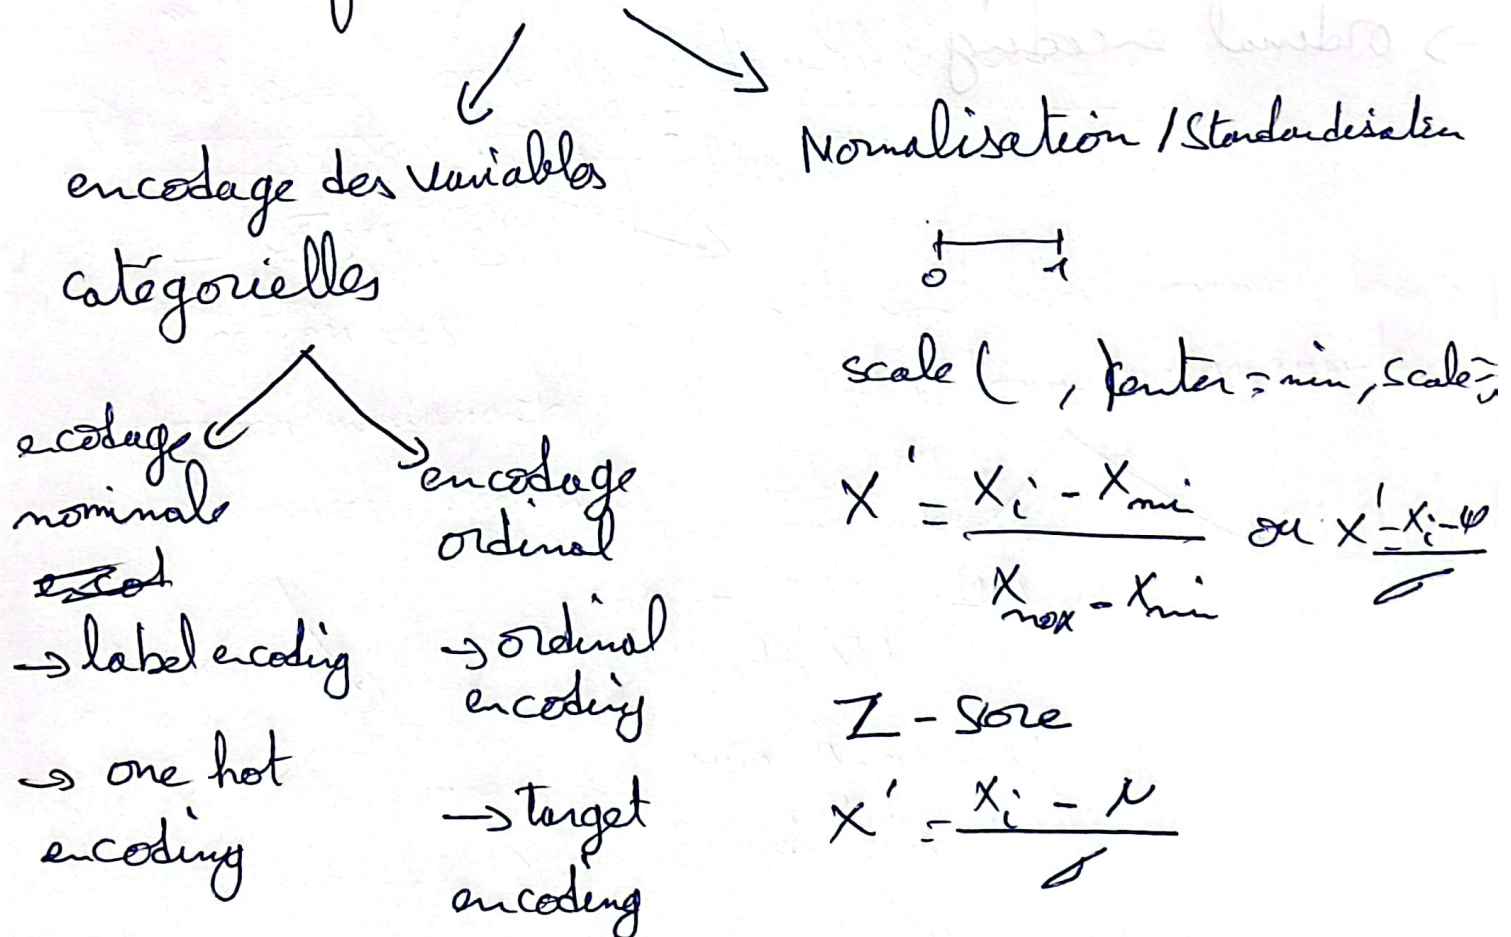 encodage des variables
catégorielles
ecodage
nominale
→ label encoding
→ one hot
encoding
encodage
ordinal
→ ordinal
encoding
→ target
encoding
Normalisation / Standardisation
0 1
scale ( , center = min, scale =
X' = (Xi - Xmin) / (Xmax - Xmin) ou X' = (Xi - φ) / σ
Z - score
X' = (Xi - μ) / σ